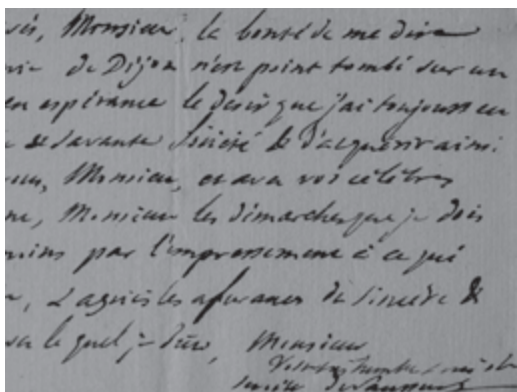 Monsieur, la bonté de me dire
de Dijon n'est point tombé sur un
en espérance le desir que j'ai toujours eu
savante Société & d'acquerir ainsi
Monsieur, et avec vos célèbres
Monsieur les démarches que je dois
moins par l'empressement à ce qui
& agréés les assurances de sincère &
le quel je suis, Monsieur
Votre très humble